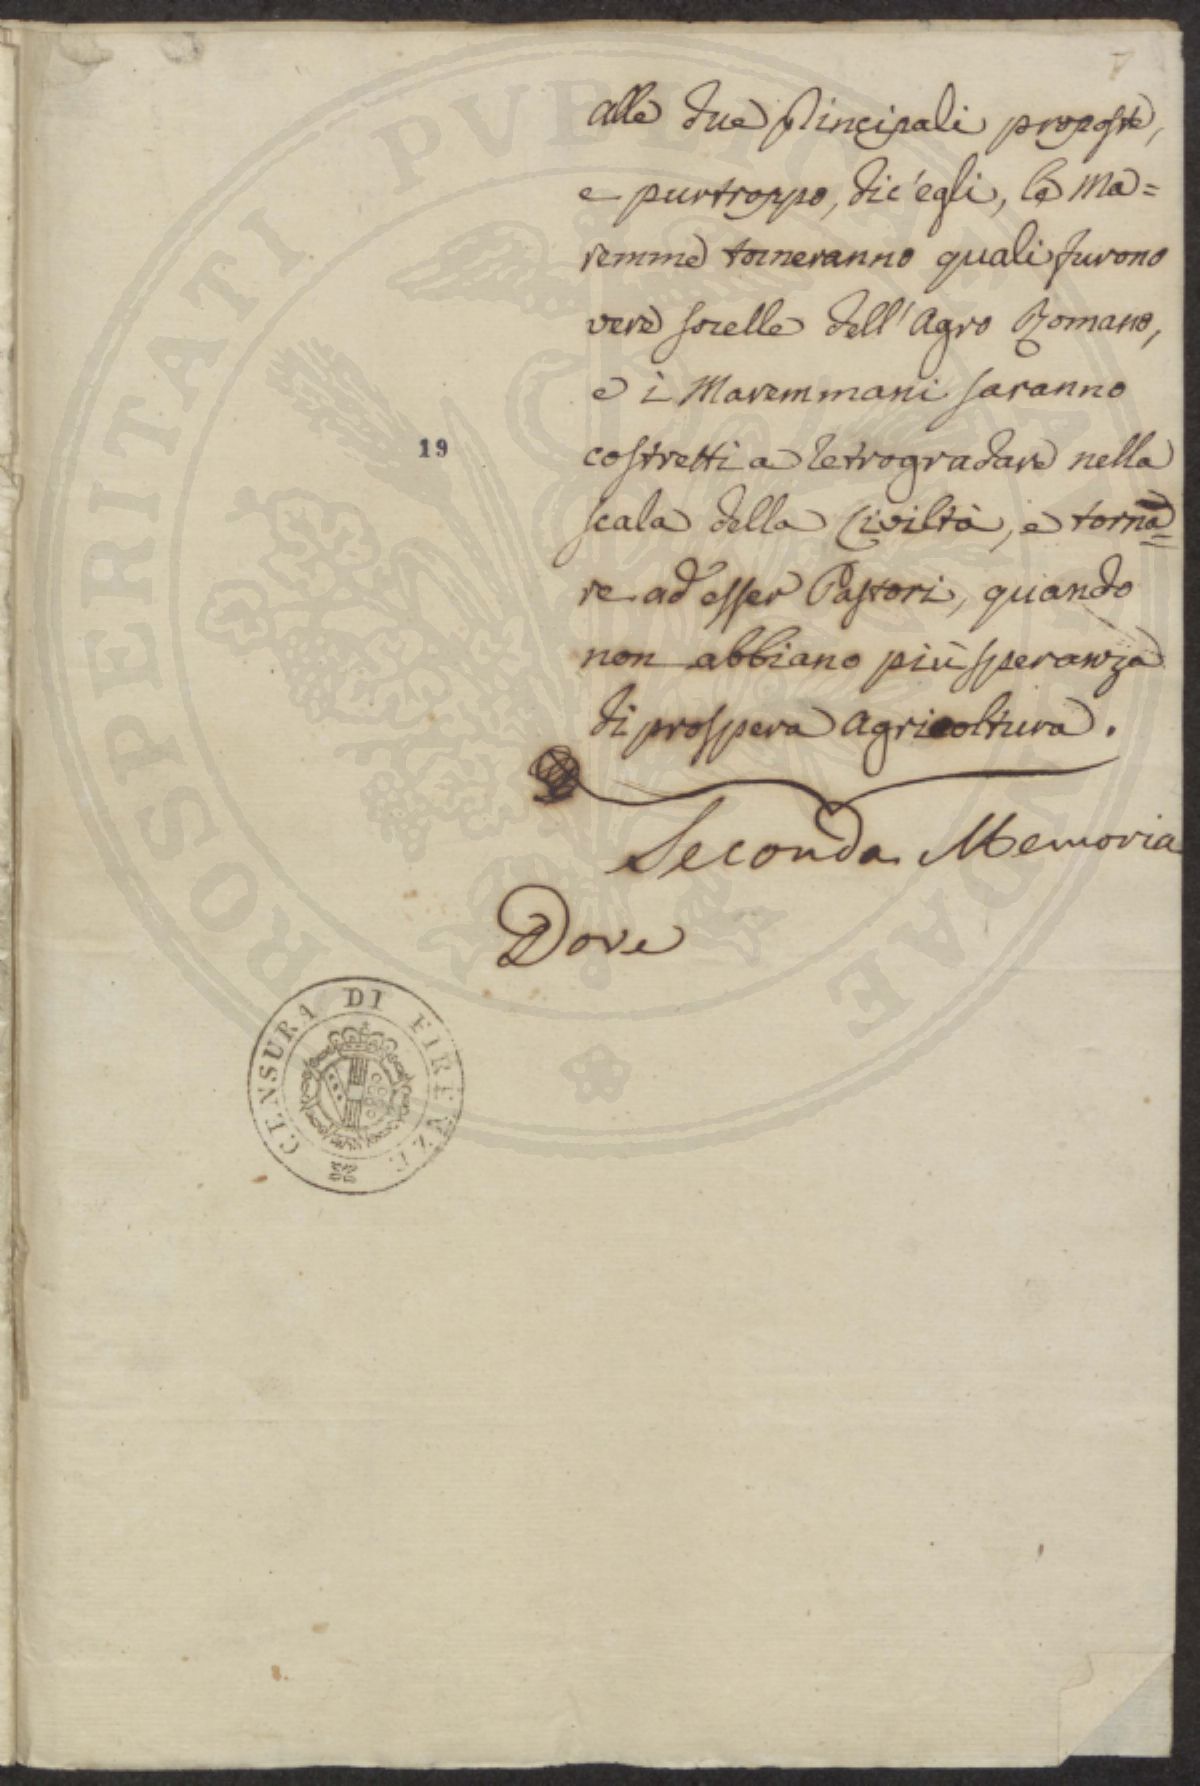 7
alle due Principali proposte,
e purtroppo, dic'egli, le Ma=
remme torneranno quali furono
vere sorelle dell'Agro Romano,
e i Maremmani saranno
19
costretti a retrogradare nella
scala della Civiltà, e torna=
re ad esser Pastori, quando
non abbiano più speranza
di prospera Agricoltura.
Seconda Memoria
Dove
CENSURA DI FIRENZE
PROSPERITATI PVBLICAE